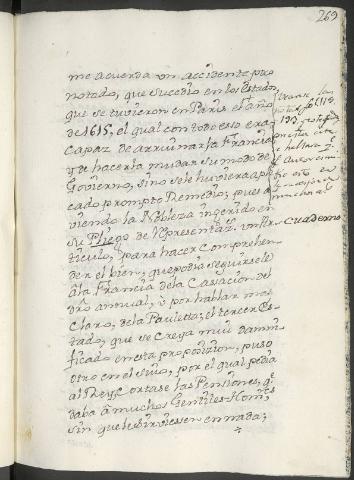 269
me acuerda un accidente pro
notado, que sucedio en los Estados,
que se tuvieron en Paris el año
de 1615, el qual con todo esso era
capaz de arruinar la Francia
y de hacerla mudar su modo de
Govierno, sino se le huviera apli
cado prompto Remedio; pues a
viendo la Nobleza ingerido en
su Pliego de Representaz. un Ar
ticulo, para hacer comprehen
der el bien, que podia seguirsele
a la Francia de la Casacion del
dro annual, ò por hablar mas
claro, de la Pauletta; el tercer Es
tado, que se creya mui damni
ficado en esta proposizion, puso
otro en el suio, por el qual pedia
al Rey Cortase las Pensiones, q̃
daba à muchos Gentiles-Homs.
sin que le sirviessen en nada;
Veanse las
notas, fol. 118.
cuaderno